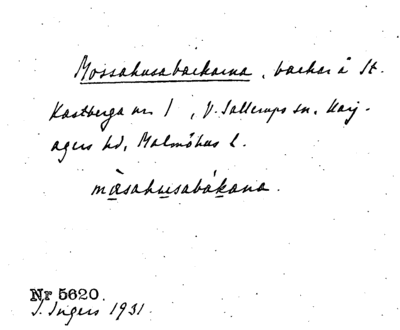 Mossahusabackarna, backar å St.
Kastberga nr 1, V. Sallerups sn, Harj-
agers hd, Malmöhus l.
måsahusabákana.
Nr 5620.
I. Ingers 1931.